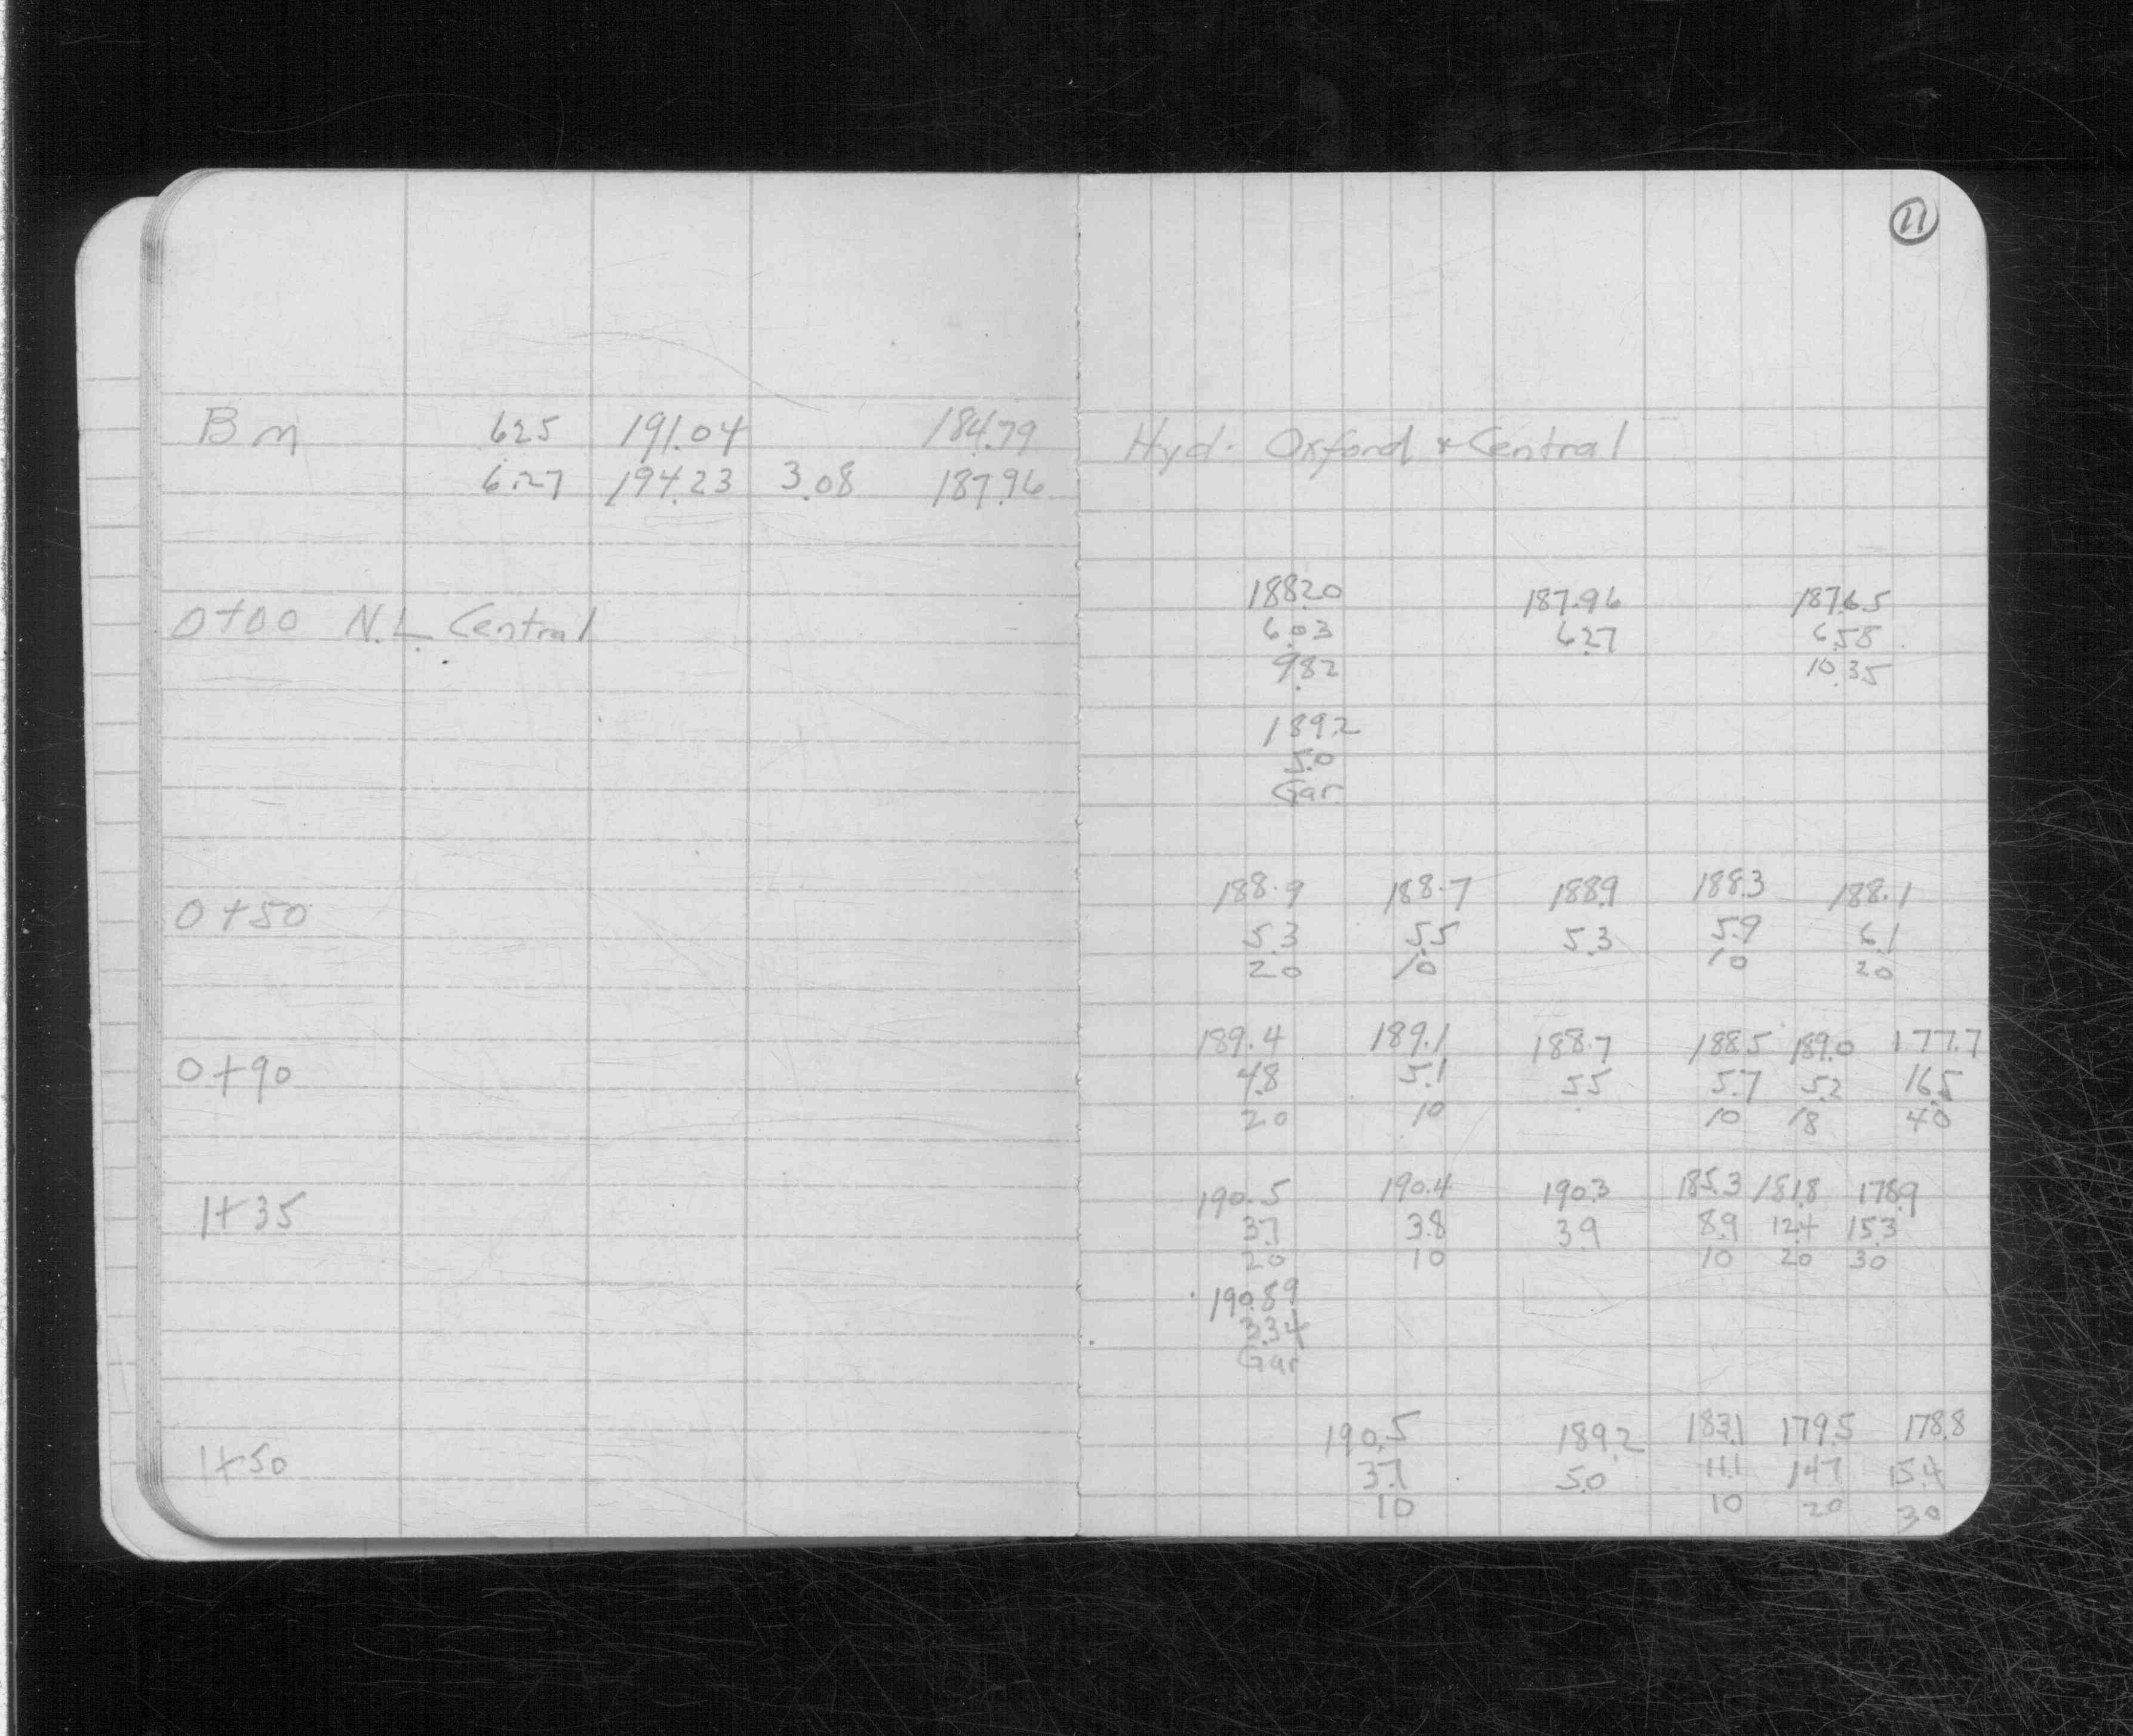 11
BM 6.25 191.04 184.79 Hyd. Oxford & Central
6.27 194.23 3.08 187.96
188.20 187.96 187.65
0+00 N.L. Central 6.03 6.27 6.58
9.82 10.35
189.2
5.0
Gar.
188.9 188.7 188.9 188.3 188.1
0+50 5.3 5.5 5.3 5.9 6.1
20 10 10 20
189.4 189.1 188.7 188.5 189.0 177.7
0+90 4.8 5.1 5.5 5.7 5.2 16.5
20 10 10 18 40
190.5 190.4 190.3 185.3 181.8 178.9
1+35 3.7 3.8 3.9 8.9 12.4 15.3
20 10 10 20 30
190.89
3.34
Gar
190.5 189.2 183.1 179.5 178.8
1+50 3.7 5.0 11.1 14.7 15.4
10 10 20 30